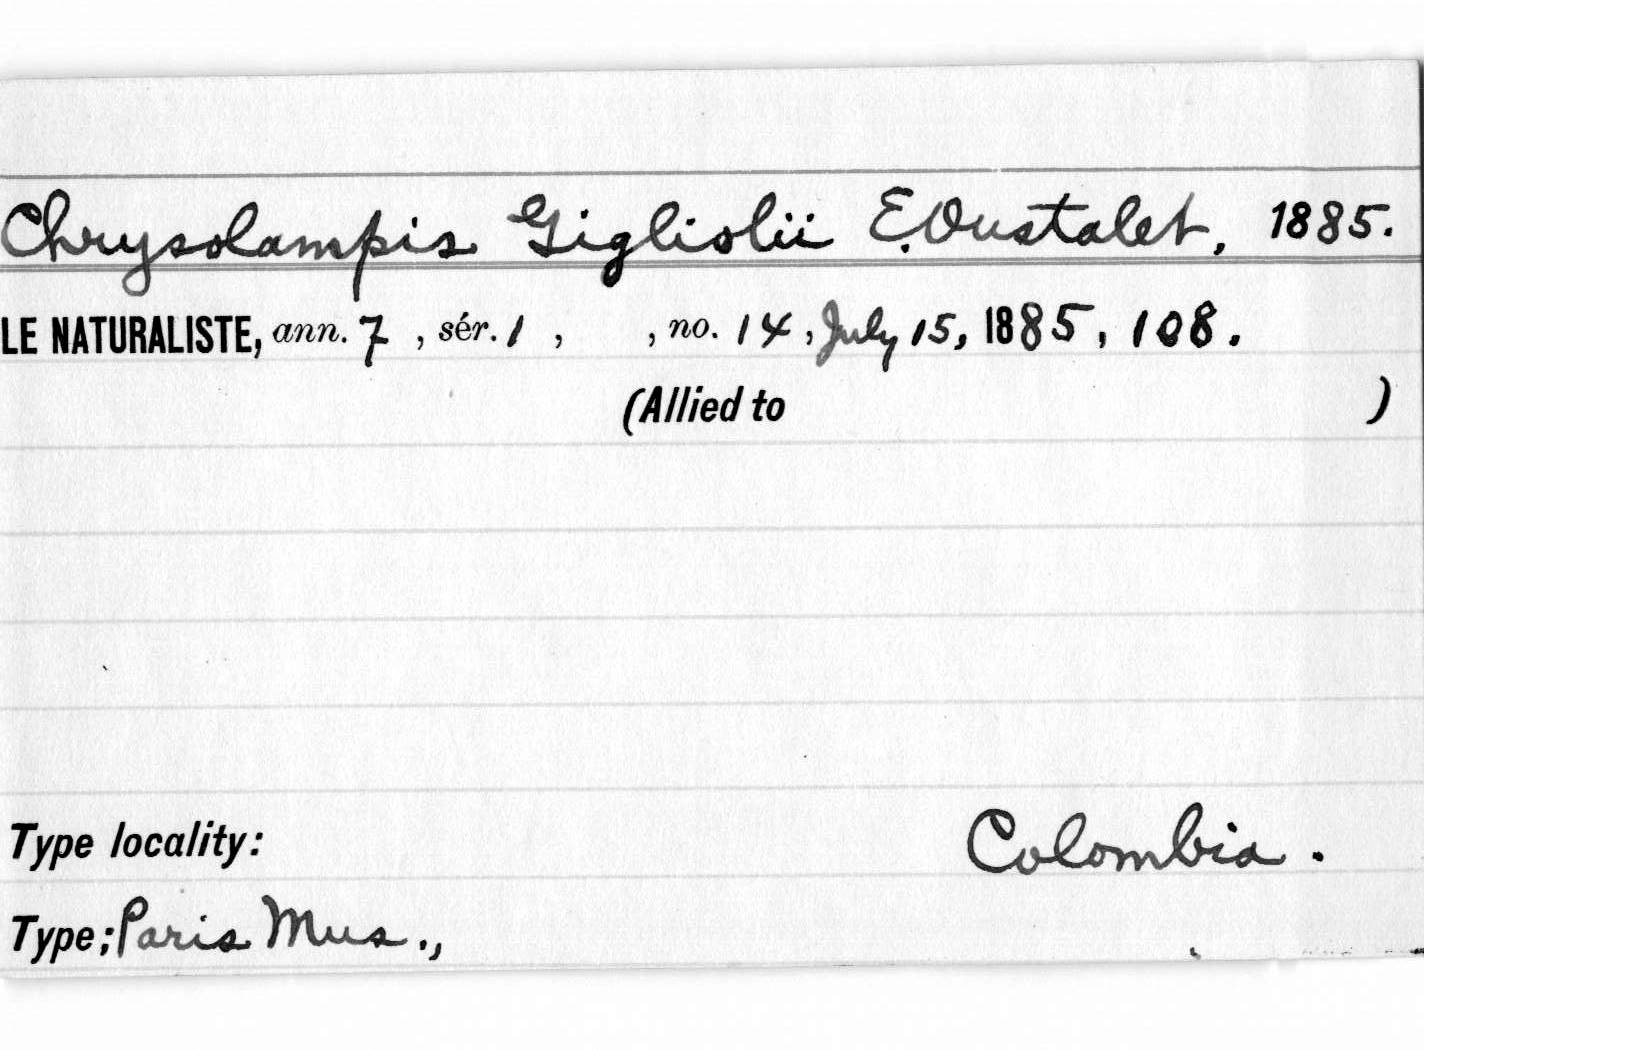 Chrysolampis Gigliolii E. Oustalet, 1885.
LE NATURALISTE, ann. 7 , sér. 1 , , no. 14 , July 15, 1885 , 108 .
(Allied to )
Type locality: Colombia .
Type; Paris Mus .,